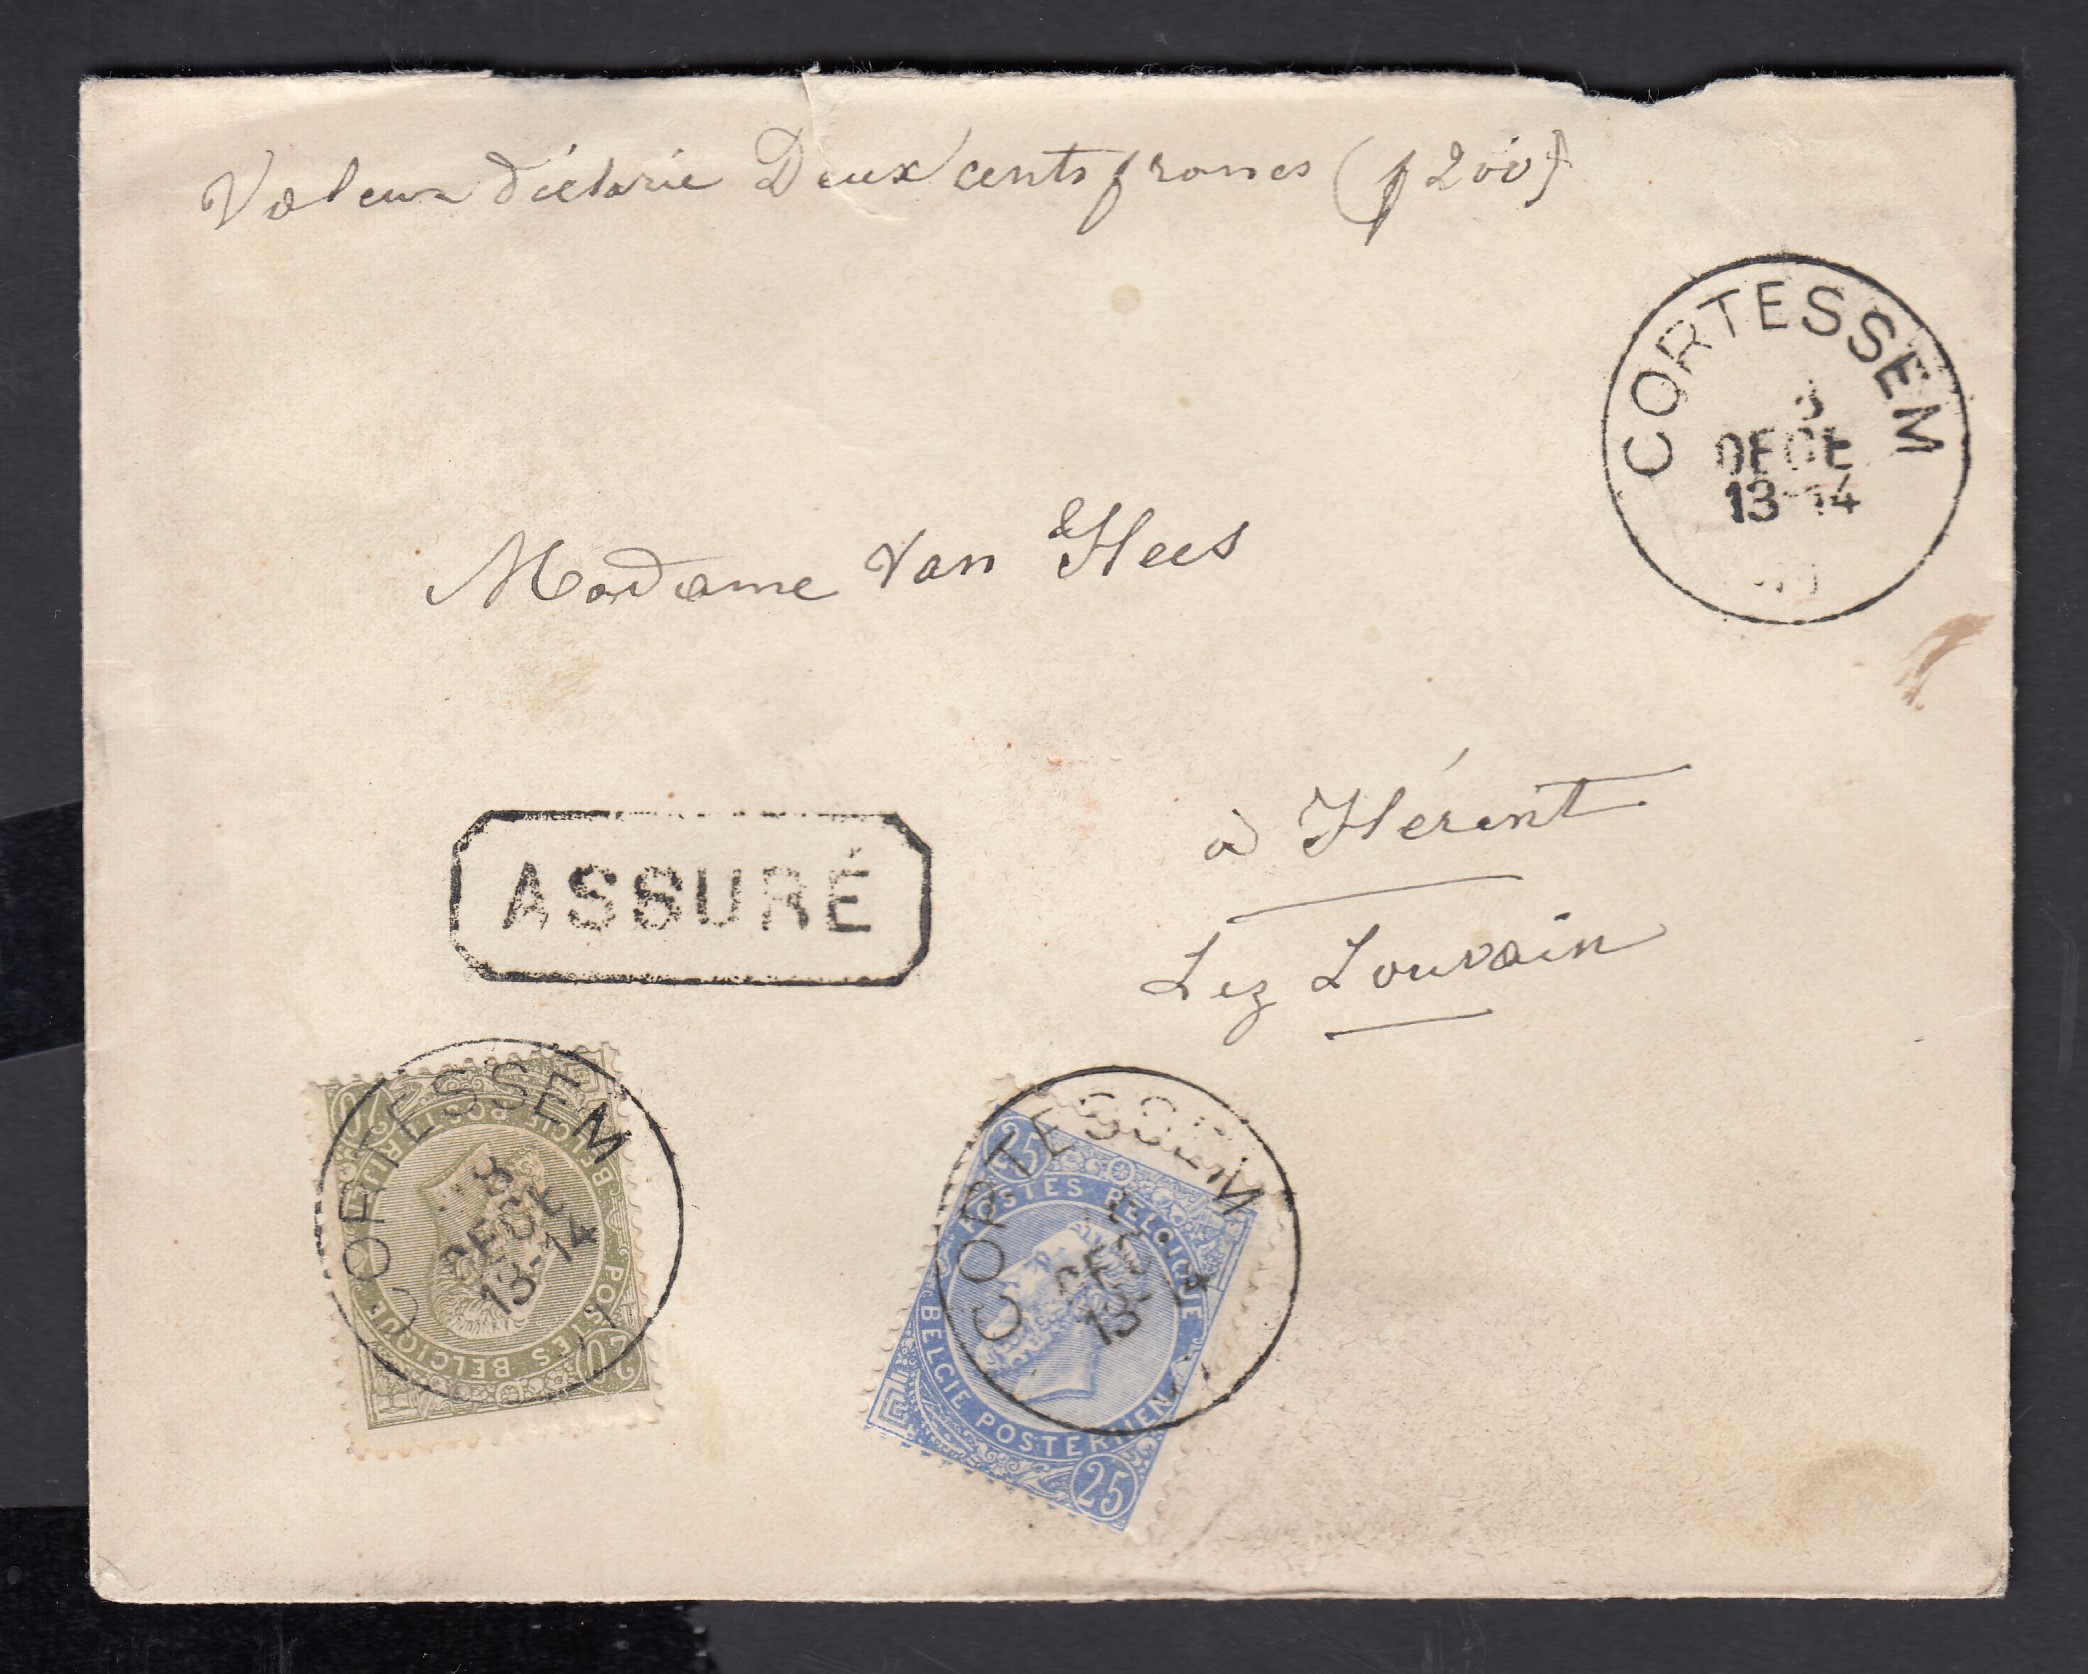 Valeur déclarée Deux cents francs (f 200)
CORTESSEM
DECE
13-14
Madame Van Hees
à Hérent
Lez Louvain
ASSURÉ
CORTESSEM
8
DECE
13-14
20
POSTES BELGIQUE
BELGIE POSTERIJEN
20
CORTESSEM
DECE
13-14
25
POSTES BELGIQUE
BELGIE POSTERIJEN
25